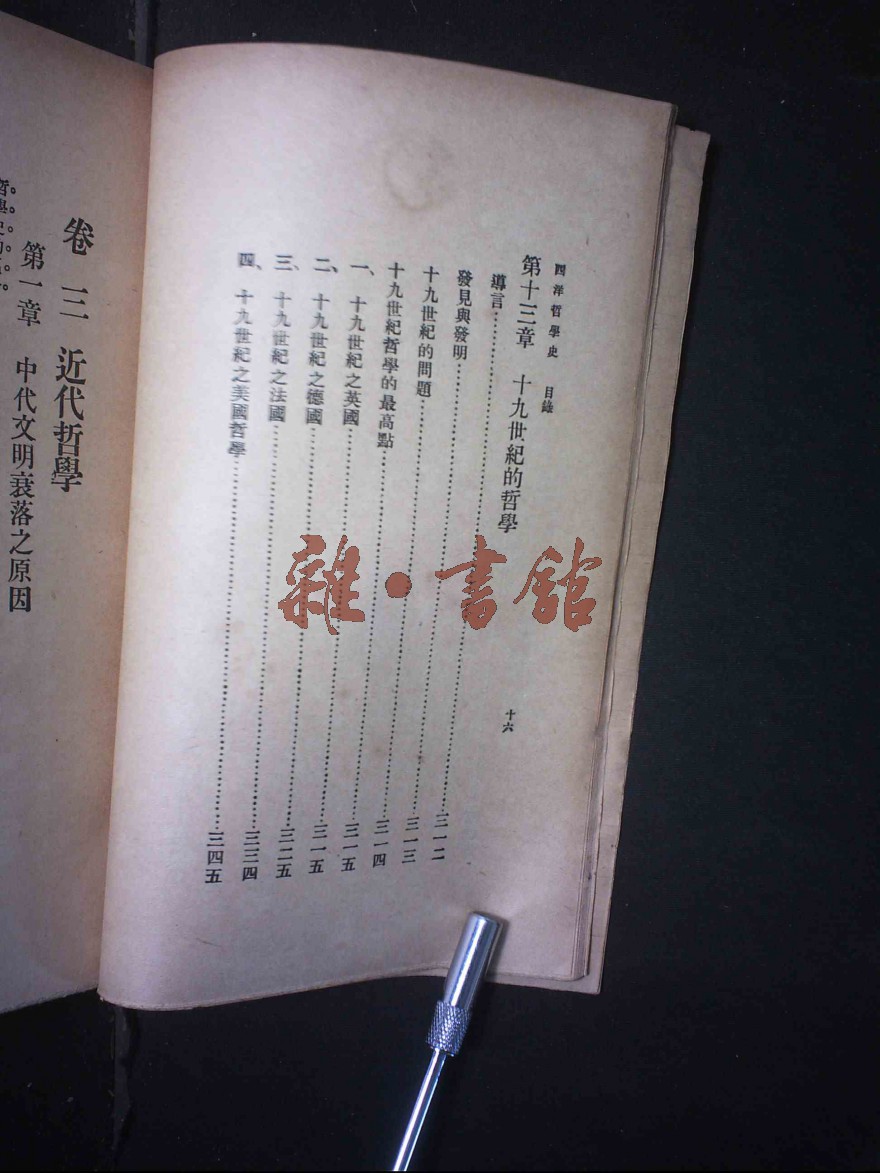 西洋哲學史 目錄
十六
第十三章 十九世紀的哲學
導言……三一二
發見與發明……三一三
十九世紀的問題……三一四
十九世紀哲學的最高點……三一五
一、十九世紀之英國……三一五
二、十九世紀之德國……三二五
三、十九世紀之法國……三三四
四、十九世紀之美國哲學……三四五
雜·書館
卷三 近代哲學
第一章 中代文明衰落之原因